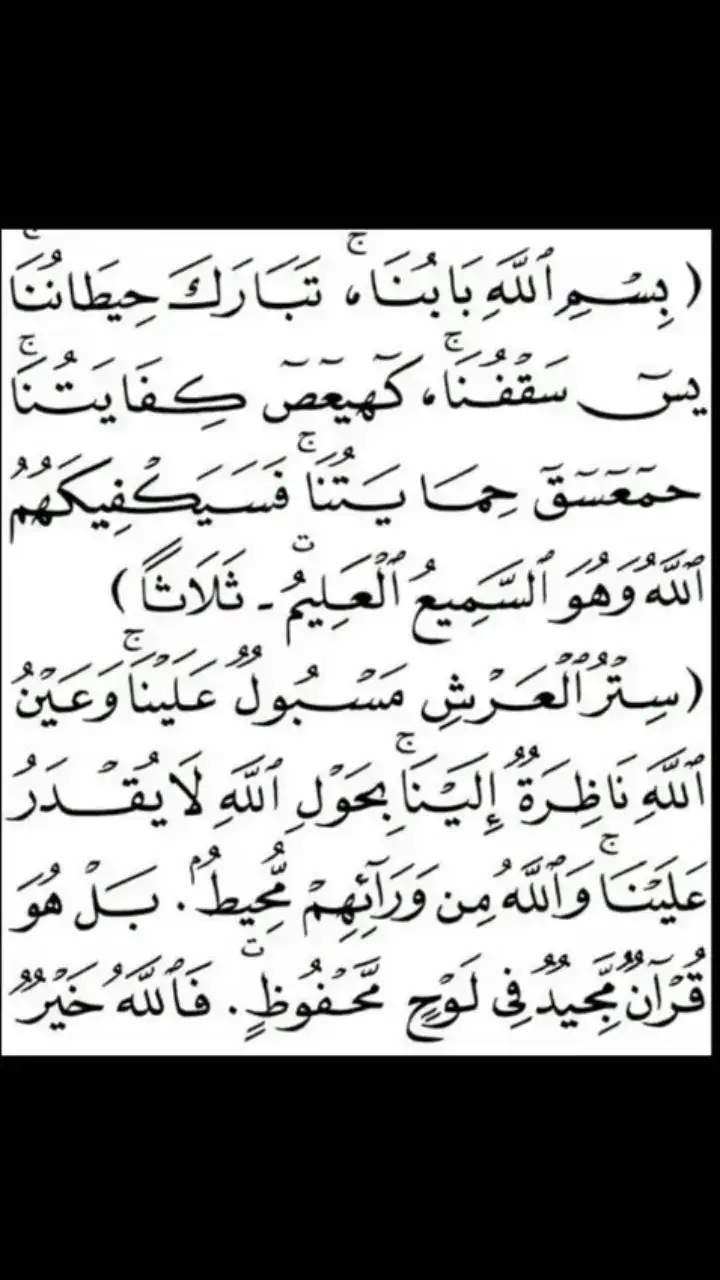 ( بِسْمِ ٱللَّهِ بَابُنَا ۚ، تَبَارَكَ حِيطَانُنَا ۚ
يسٓ سَقْفُنَا ۚ، كٓهيعٓصٓ كِفَايَتُنَا ۚ
حمٓعٓسٓقٓ حِمَايَتُنَا ۚ فَسَيَكْفِيكَهُمُ
ٱللَّهُ وَهُوَ ٱلسَّمِيعُ ٱلْعَلِيمُ ـ ثَلَاثًا )
( سِتْرُ ٱلْعَرْشِ مَسْبُولٌ عَلَيْنَا ۚ وَعَيْنُ
ٱللَّهِ نَاظِرَةٌ إِلَيْنَا ۚ بِحَوْلِ ٱللَّهِ لَا يُقْدَرُ
عَلَيْنَا ۚ وَٱللَّهُ مِن وَرَآئِهِمْ مُّحِيطٌ . بَلْ هُوَ
قُرْآنٌ مَّجِيدٌ فِى لَوْحٍ مَّحْفُوظٍ . فَٱللَّهُ خَيْرٌ